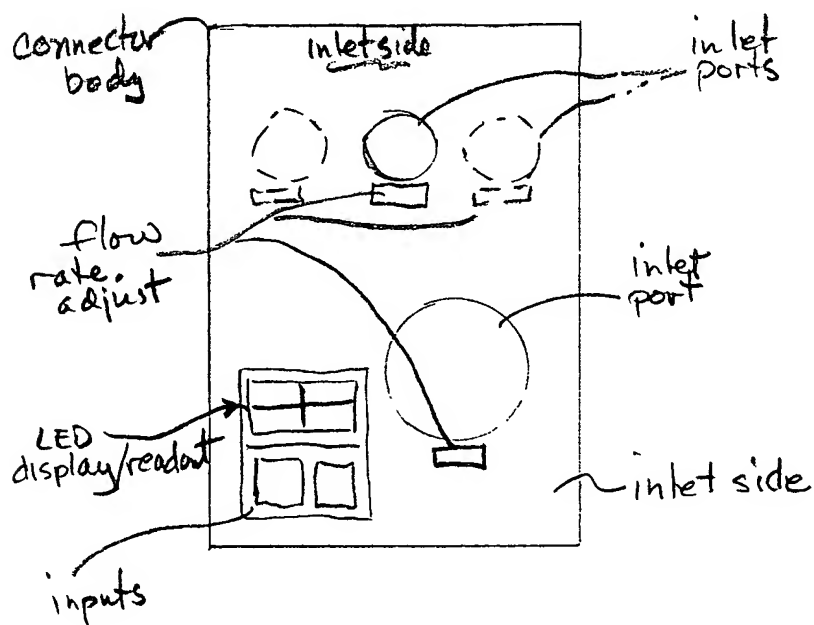 connector
body
inlet side
inlet
ports
flow
rate.
adjust
inlet
port
LED
display/readout
inlet side
inputs